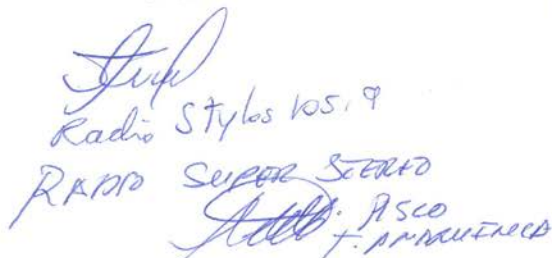 Radio Stylos 105.9
RADIO SUPER STEREO
PISCO